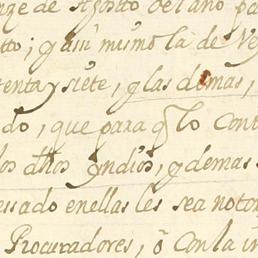 nge de Agosto del año pa
tto; y assi mismo la de Ve
tenta y siete, y las demas,
do, que para q̃ lo Cont
los dhos Yndios, y demas
essado en ellas les sea noto
Procuradores, ò Con la in